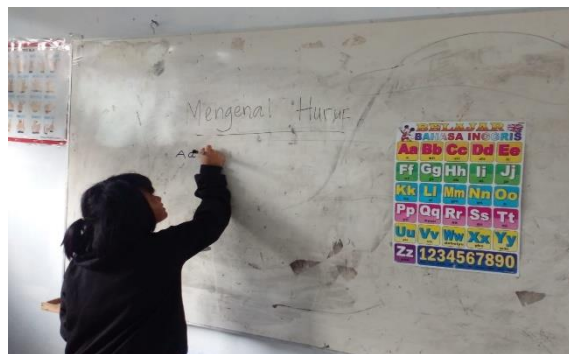 Mengenal Huruf
Aa
BELAJAR
BAHASA INGGRIS
Aa Bb Cc Dd Ee
Ff Gg Hh Ii Jj
Kk Ll Mm Nn Oo
Pp Qq Rr Ss Tt
Uu Vv Ww Xx Yy
Zz 1234567890